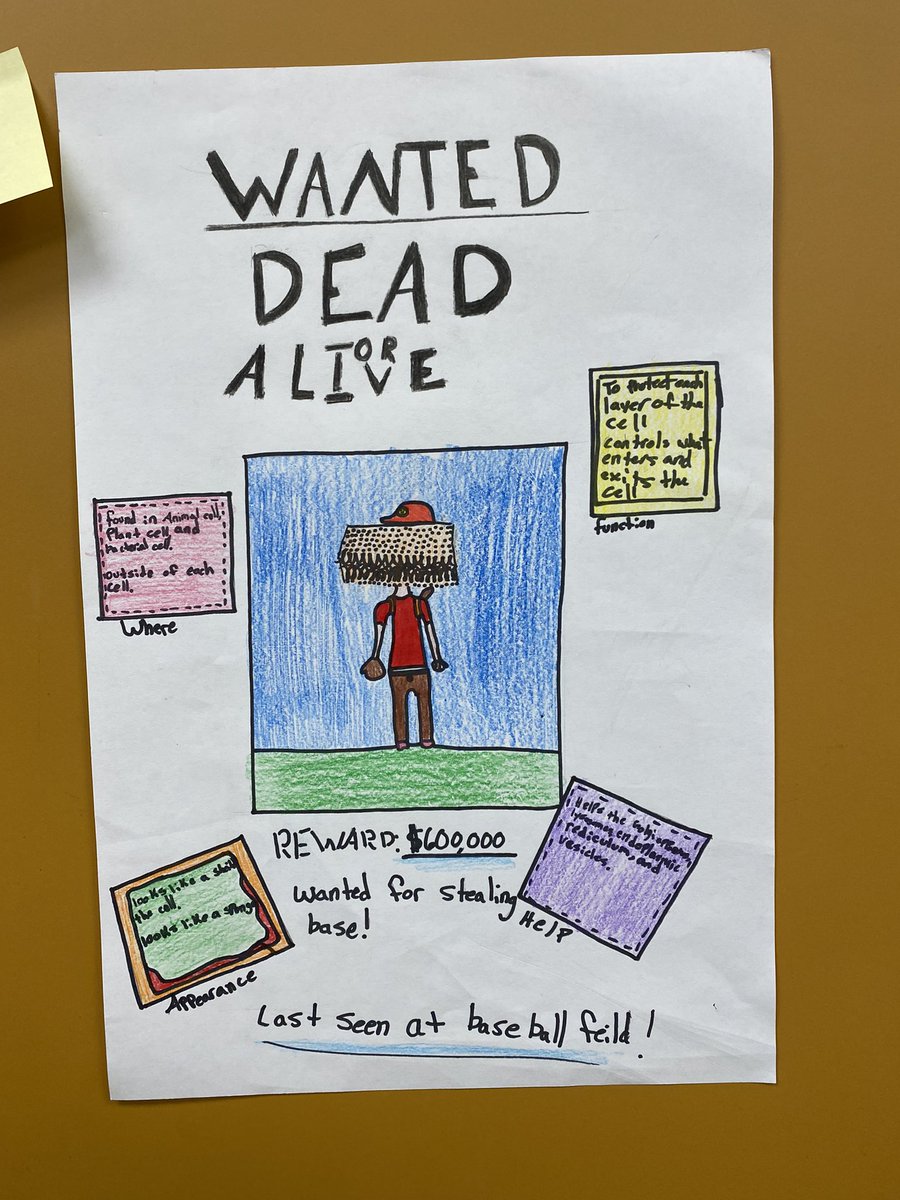 WANTED
DEAD
OR
ALIVE
To Protect each
layer of the
cell
controls what
enters and
exits the
cell
function
found in Animal cell,
Plant cell and
bacterial cell.
outside of each
cell.
Where
REWARD: $600,000
Wanted for stealing
base!
Helps the
endoplasmic
and
vesicles.
Help
looks like a
the cell.
looks like a
Appearance
Last seen at baseball feild!